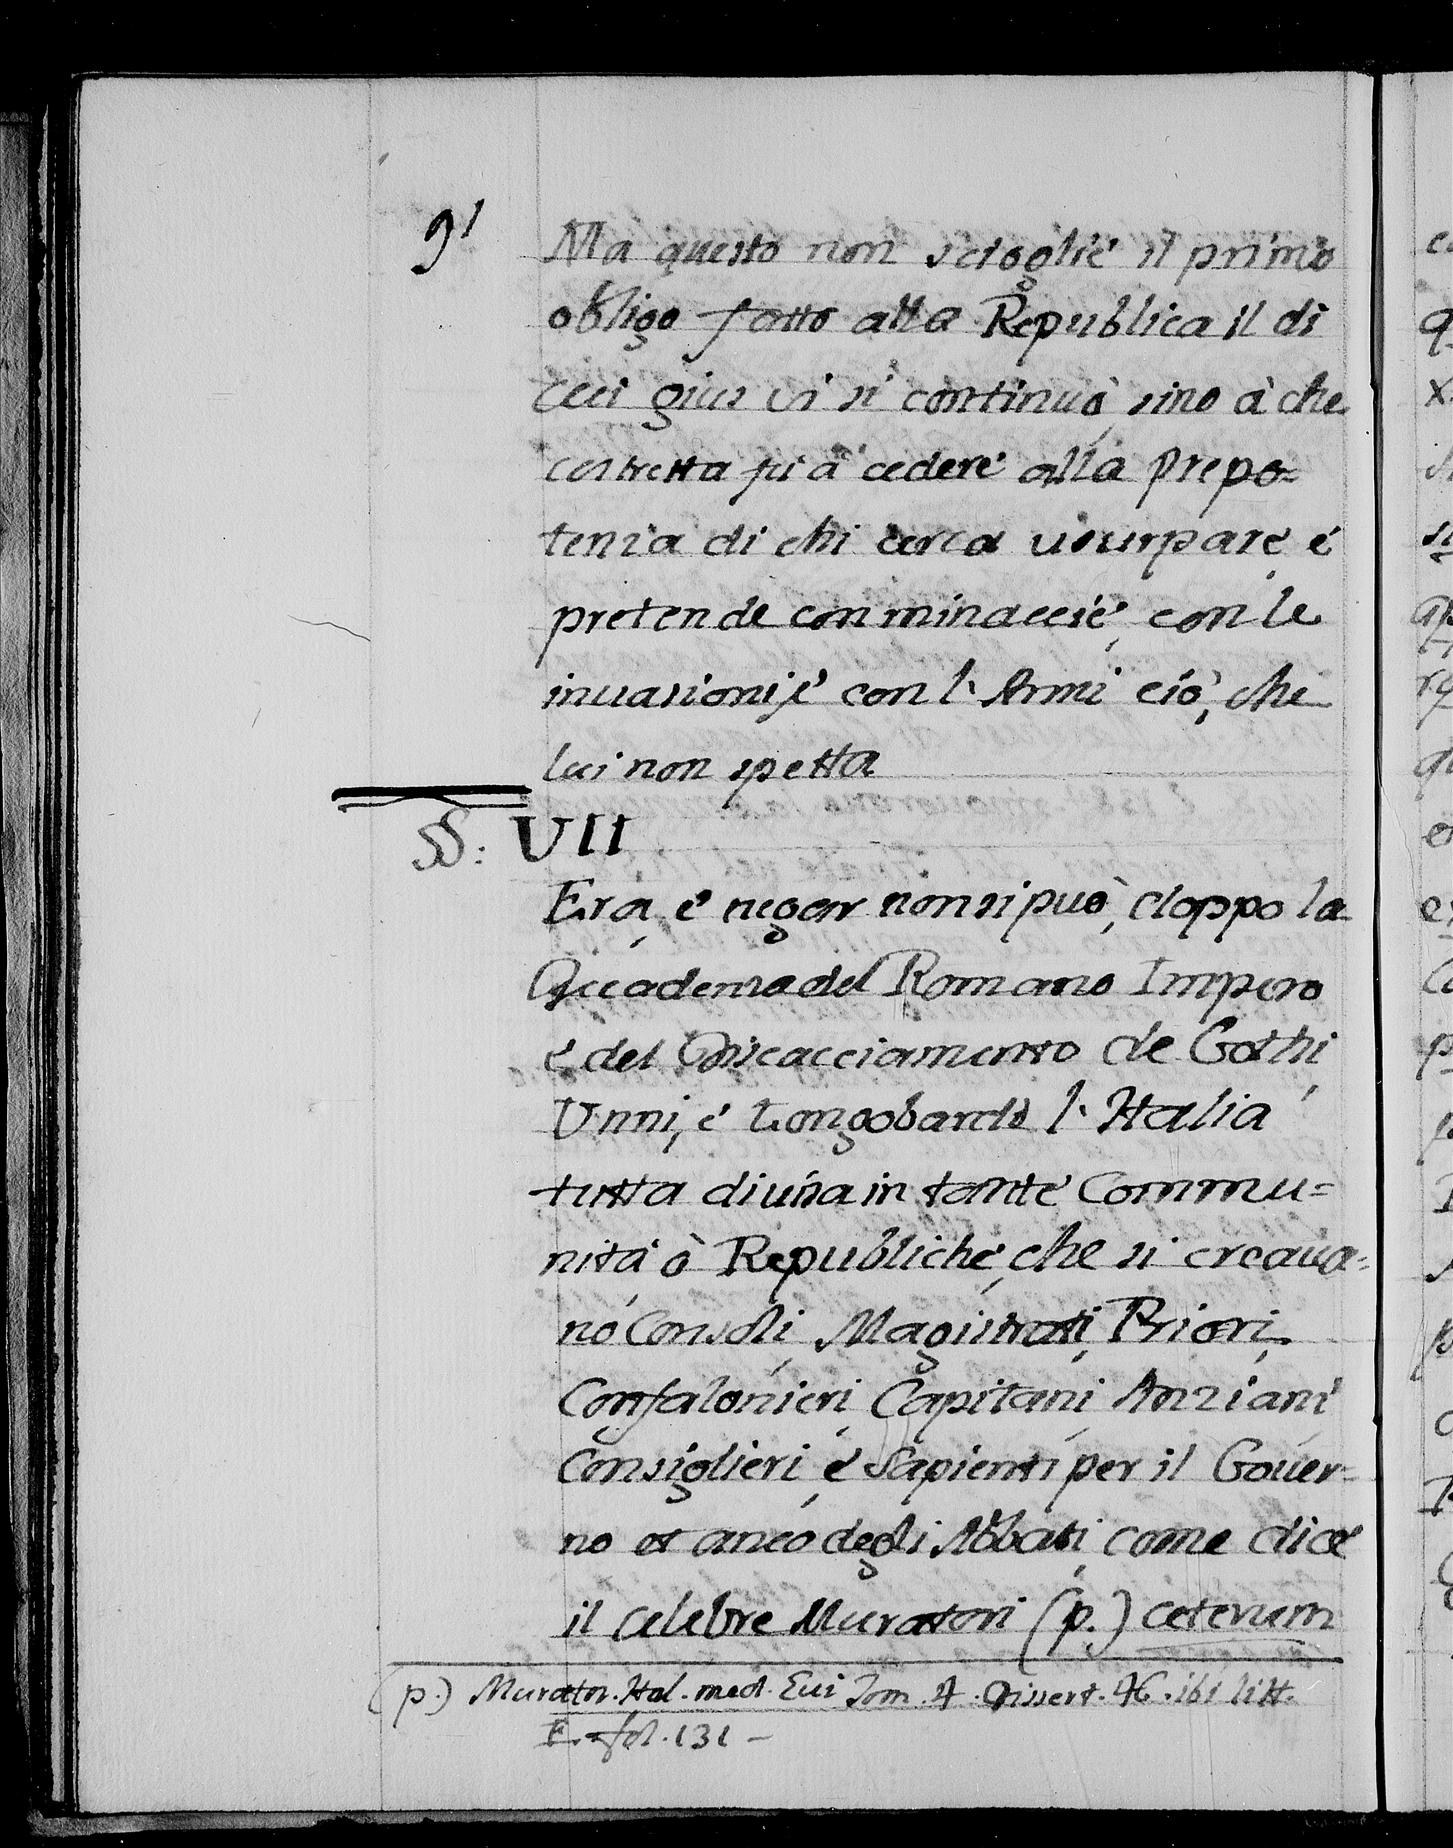 91
Ma questo non scioglie il primo
obligo fatto alla Republica il di
cui gius vi si continuò, sino à che
costretta fù à cedere alla prepo-
tenza di chi cerca usurpare, é
pretende con minaccie, con le
invasioni, é con l'Armi ciò, che
lui non spetta
§§: VII
Era, é negar non si può, doppo la
decadenza del Romano Impero
é del Discacciamento de Gothi,
Unni, é Longobardi l'Italia
tutta divisa in tante Commu=
nitá, ó Republiche, che si creava=
no Consoli, Magistrati, Priori,
Confalonieri, Capitani, Anziani
Consiglieri, é Sapienti per il Gover=
no et anco degli Abbati, come dice
il celebre Muratori (p.) ceterum
(p.) Murator. Ital. med. Evi Tom. 4. Dissert. 46. ibi litt.
E. fol. 131 -